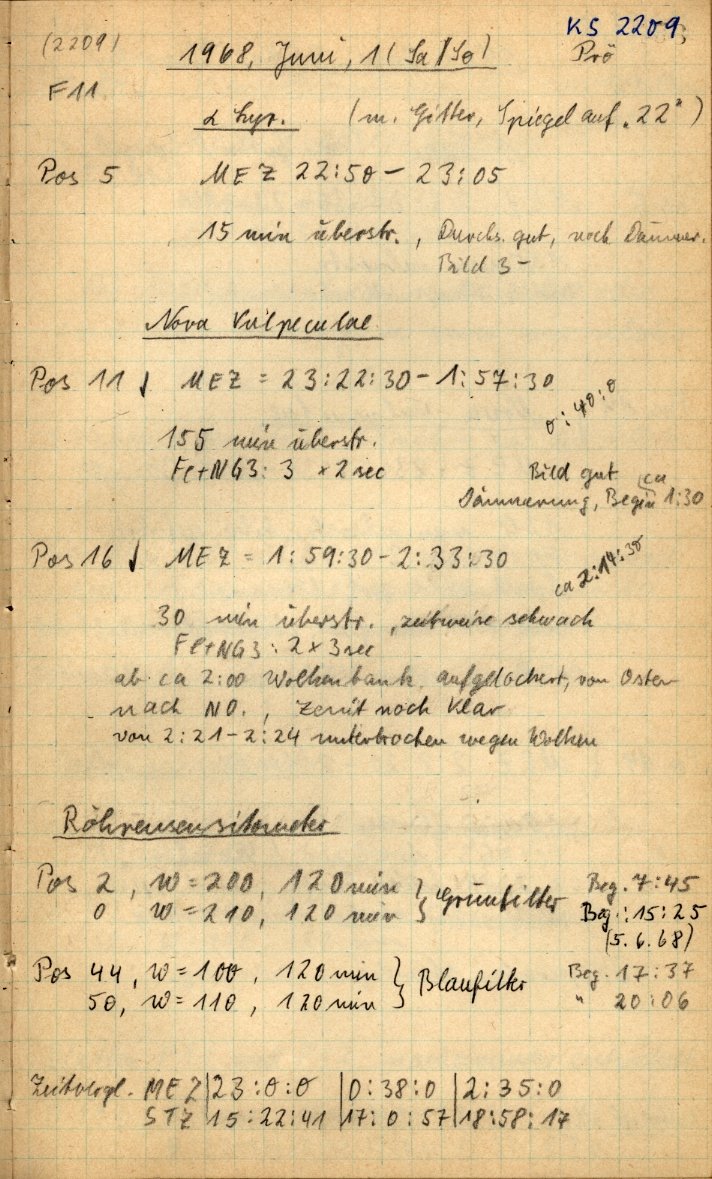 KS 2209
(2209) 1968, Juni, 1 (Sa/So) Prö
F11
α Lyr. (m. Gitter, Spiegel auf "22")
Pos 5 MEZ 22:50 - 23:05
15 min überstr., Durchs. gut, noch Dämmer.
Bild 3-
Nova Vulpeculae
Pos 11 MEZ = 23:22:30 - 1:57:30
0:40:0
155 min überstr.
Fl+NG3: 3 x 2 sec Bild gut
Dämmerung, Begin ca 1:30
Pos 16 MEZ = 1:59:30 - 2:33:30
ca 2:14:30
30 min überstr., zeitweise schwach
Fl+NG3: 2 x 3 sec
ab ca 2:00 Wolkenbank aufgelockert, von Osten
nach NO., Zenit noch klar
von 2:21 - 2:24 unterbrochen wegen Wolken
Röhrensensitometer
Pos 2, W = 200, 120 min } Grünfilter Beg. 7:45
0 W = 210, 120 min } Beg.: 15:25
(5.6.68)
Pos 44, W = 100, 120 min } Blaufilter Beg. 17:37
50, W = 110, 120 min } " 20:06
Zeitvergl. MEZ | 23:0:0 | 0:38:0 | 2:35:0
STZ | 15:22:41 | 17:0:57 | 18:58:17